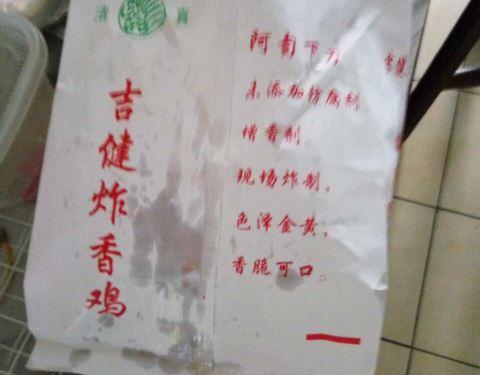 清真
吉健炸香鸡
阿訇下刀
未添加防腐剂
增香剂。
现场炸制,
色泽金黄,
香脆可口。